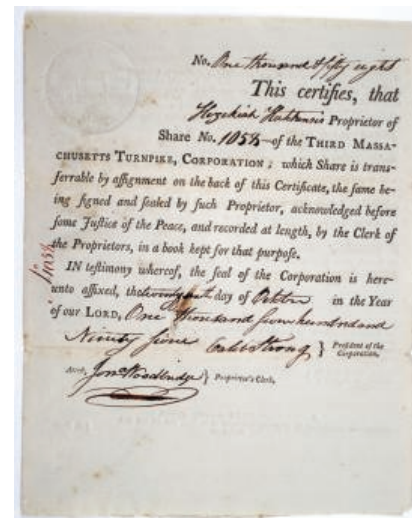 No. One thousand & fifty eight
This certifies, that
Hezekiah Hutchens is Proprietor of
Share No. 1058 — of the THIRD MASSA-
CHUSETTS TURNPIKE, CORPORATION; which Share is trans-
ferrable by aſſignment on the back of this Certificate, the ſame be-
ing ſigned and ſealed by ſuch Proprietor, acknowledged before
ſome Juſtice of the Peace, and recorded at length, by the Clerk of
the Proprietors, in a book kept for that purpoſe.
IN teſtimony whereof, the ſeal of the Corporation is here-
unto affixed, the day of in the Year
of our LORD, One thousand seven hundred and
Ninety Caleb Strong } Preſident of the
Corporation.
Atteſt, Jona Woodbridge } Proprietor's Clerk.
1058